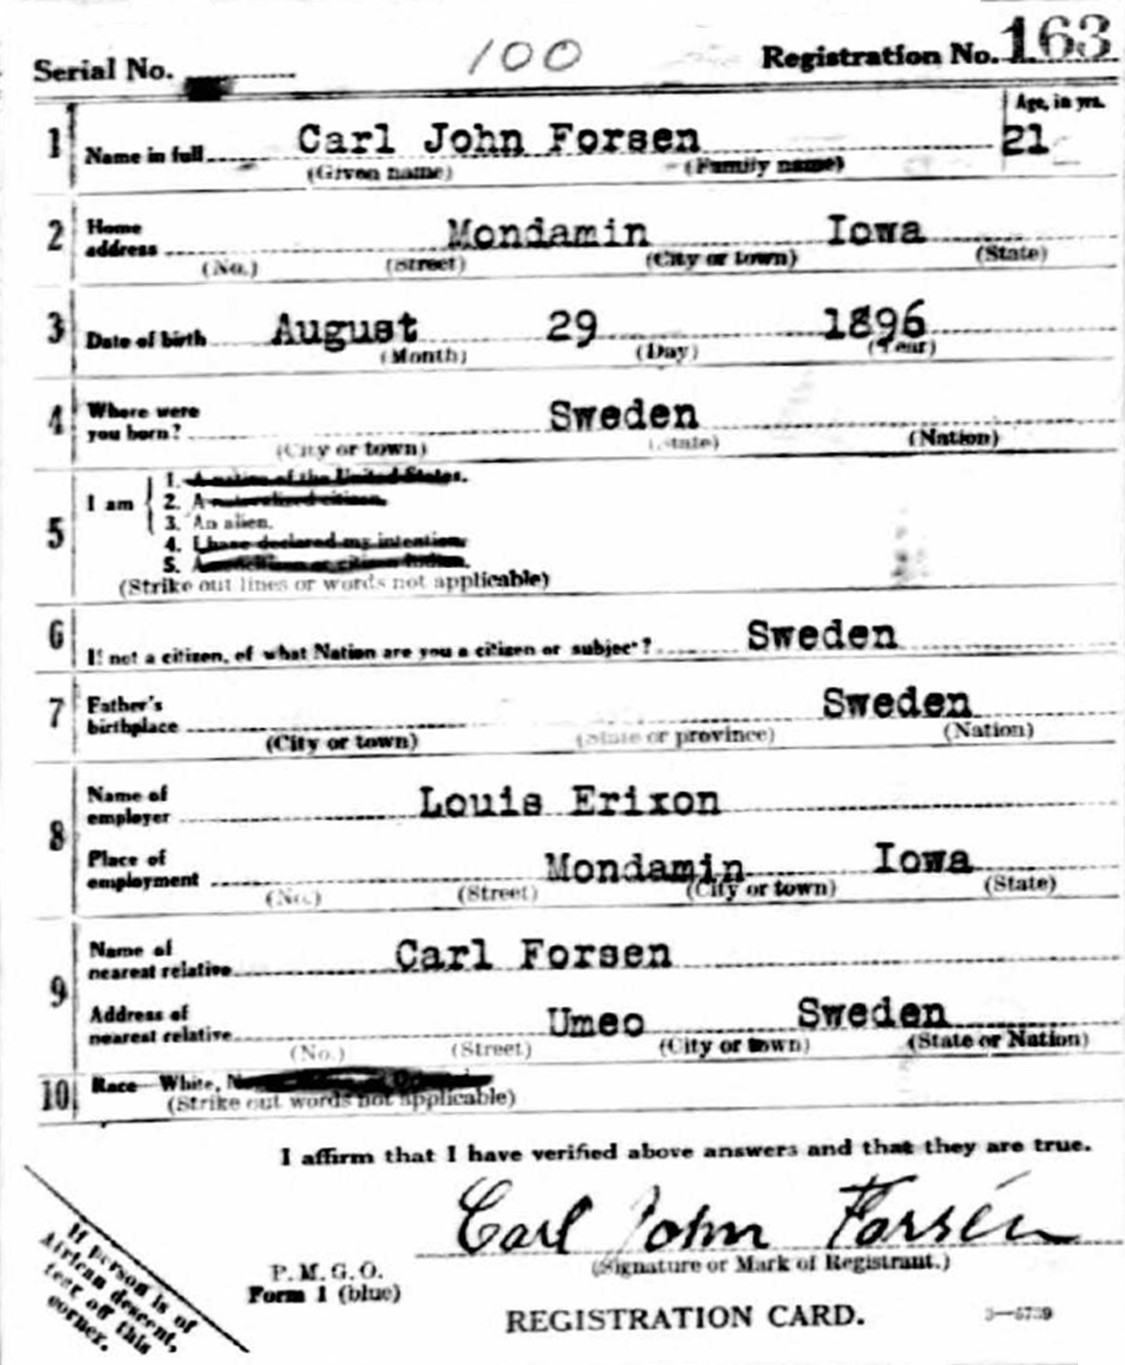 Serial No. 100 Registration No. 163
Age, in yrs.
1 Name in full Carl John Forsen 21
(Given name) (Family name)
2 Home address Mondamin Iowa
(No.) (Street) (City or town) (State)
3 Date of birth August 29 1896
(Month) (Day) (Year)
4 Where were you born? Sweden
(City or town) (State) (Nation)
5 I am
1. A native of the United States.
2. A naturalized citizen.
3. An alien.
4. I have declared my intention.
5. A
(Strike out lines or words not applicable)
6 If not a citizen, of what Nation are you a citizen or subject? Sweden
7 Father's birthplace Sweden
(City or town) (State or province) (Nation)
8 Name of employer Louis Erixon
Place of employment Mondamin Iowa
(No.) (Street) (City or town) (State)
9 Name of nearest relative Carl Forsen
Address of nearest relative Umeo Sweden
(No.) (Street) (City or town) (State or Nation)
10 Race—White,
(Strike out words not applicable)
I affirm that I have verified above answers and that they are true.
Carl John Forsén
(Signature or Mark of Registrant.)
P. M. G. O.
Form 1 (blue)
REGISTRATION CARD.
If person is of
African descent,
tear off this
corner.